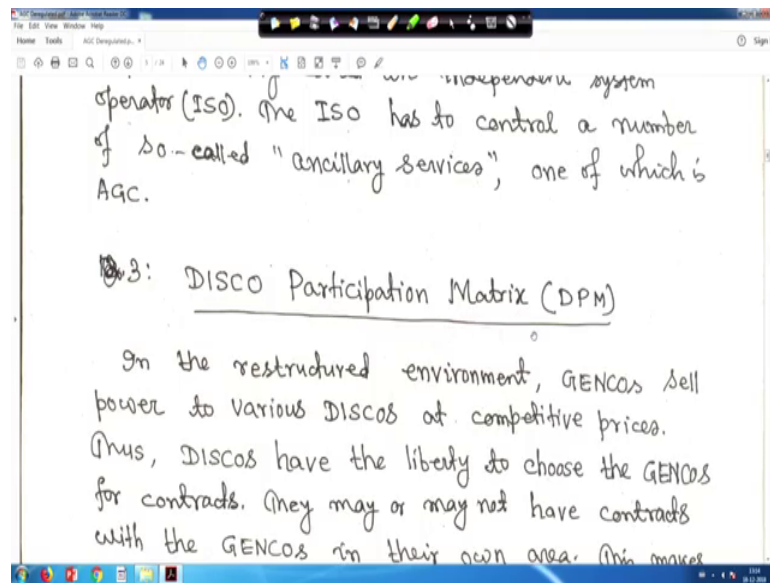 AGC Deregulated.pdf - Adobe Acrobat Reader DC
File Edit View Window Help
Home Tools AGC Deregulated.p... ×
Sign
operator (ISO). The ISO has to control a number
of so-called "ancillary services", one of which is
AGC.
3: DISCO Participation Matrix (DPM)
In the restructured environment, GENCOs sell
power to various DISCOs at competitive prices.
Thus, DISCOs have the liberty to choose the GENCOs
for contracts. They may or may not have contracts
with the GENCOs in their own area. This makes